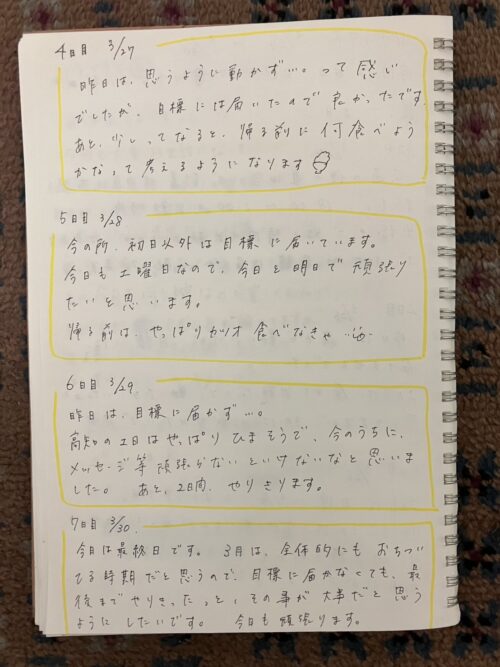 4日目 3/27
昨日は、思うように動かず…。って感じ
でしたが、目標には届いたので良かったです。
あと、少しってなると、帰る前に何食べよう
かなって考えるようになります
5日目 3/28
今の所、初日以外は目標に届いています。
今日も土曜日なので、今日と明日で頑張り
たいと思います。
帰る前は、やっぱりカツオ食べなきゃ
6日目 3/29
昨日は、目標に届かず…。
高知の日はやっぱりひまそうで、今のうちに、
メッセージ等頑張らないといけないなと思いま
した。 あと、2日間、やりきります。
7日目 3/30.
今日は最終日です。 3月は、全体的にもおちつい
てる時期だと思うので、目標に届かなくても、最
後までやりきったっと、その事が大事だと思う
ようにしたいです。 今日も頑張ります。